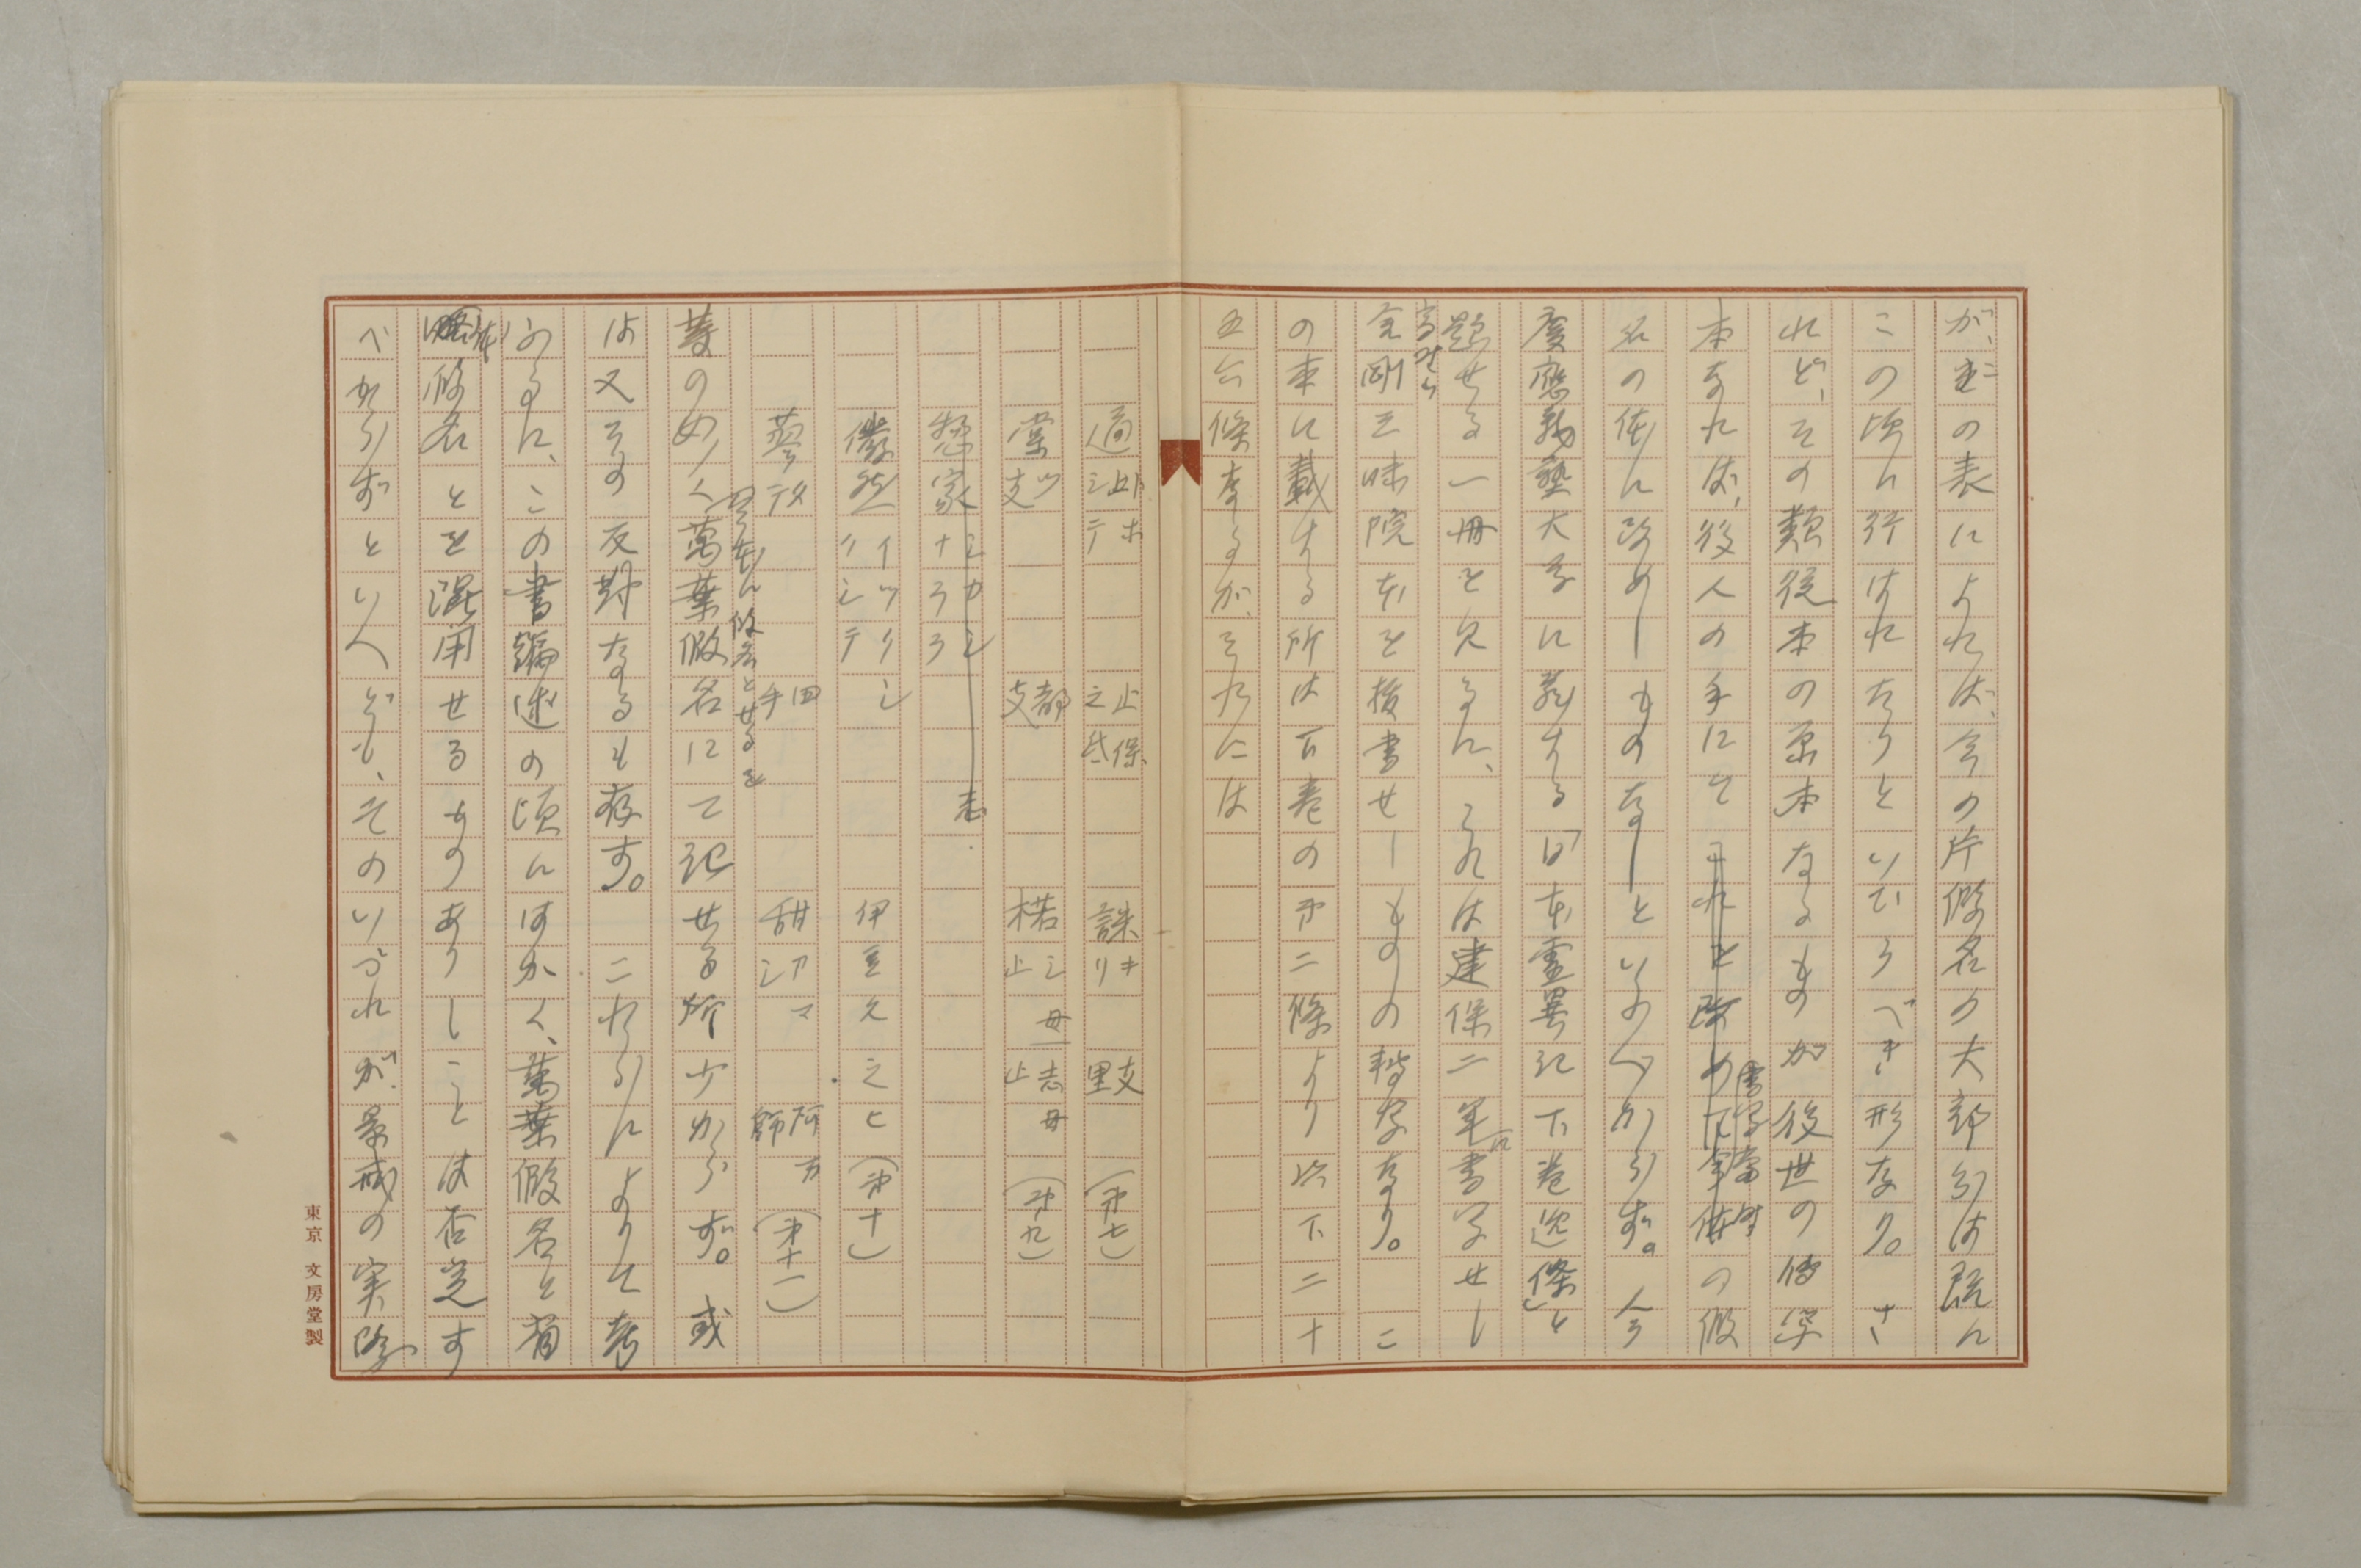 が、この表によれば、今の片假名の大部分は既に
この頃に行はれたりといひうべき形なり。さ
れど、その類従本の原本なるものが後世の傳寫
本なれば、後人の手にて書寫當時の假
名の体に改めしものなしといふべからず。今
慶應義塾大学に蔵する「日本霊異記下巻逸條」と
題せる一冊を見るに、これは建保二年に書写せし
高野山
金剛三昧院本を抜書せしものの轉写なり。こ
の本に載する所は下巻の第二條より以下二十
五六條なるが、それには
適 止シ ホテ 止之 保氐 誅 キリ 支里 (第七)
棠 ツ支 都支 楉 シ止母 志止母 (第九)
愁家 シカシナラシ
儼然 イツクシクシテ 伊豆久之ヒ (第十)
田手 甜 アマシ 阿万 (第十一)
等の如く萬葉假名にて記せる所少からず。或
は又その反對なるも存す。これらによりて考
ふるに、この書編述の頃にはかく、萬葉假名と省
略假名とを混用せるものありしことは否定す
べからずといへども、そのいづれが景戒の実際
東京 文房堂製